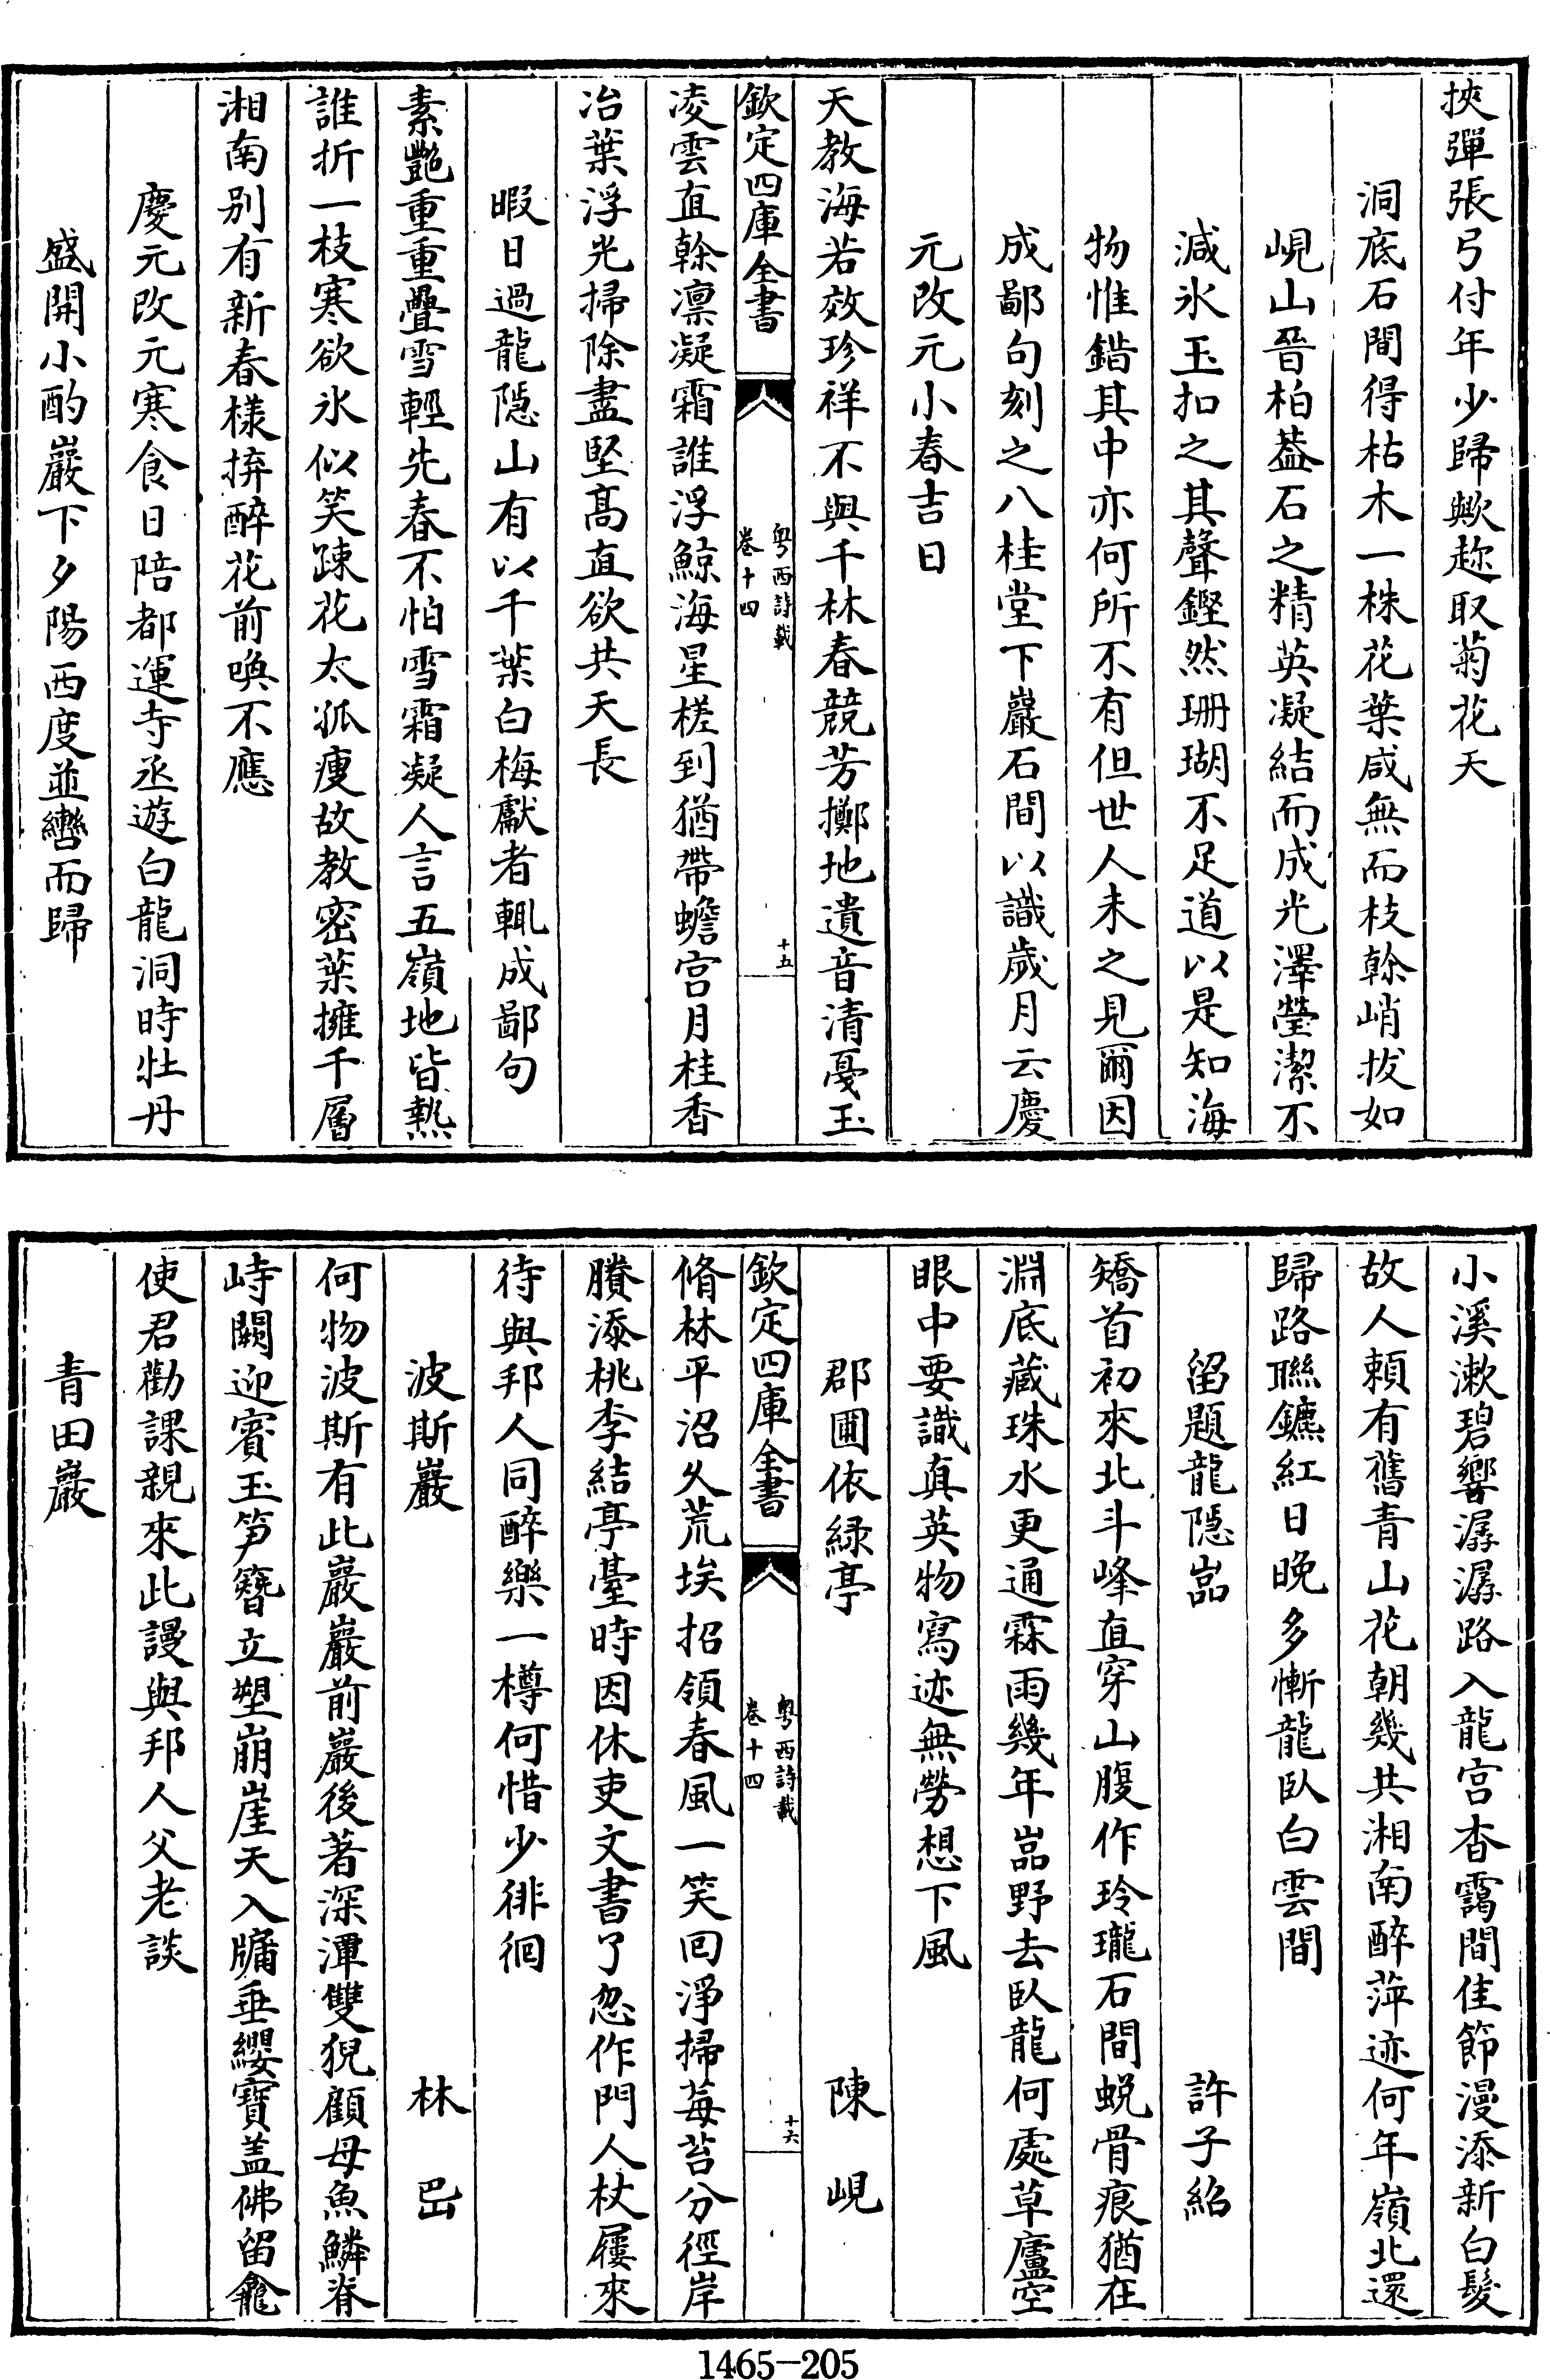 挾彈張弓付年少歸歟趂取菊花天
洞底石間得枯木一株花葉咸無而枝榦峭拔如
峴山晉柏葢石之精英凝結而成光澤瑩潔不
減氷玉扣之其聲鏗然珊瑚不足道以是知海
物惟錯其中亦何所不有但世人未之見爾因
成鄙句刻之八桂堂下巖石間以識歲月云慶
元改元小春吉日
天教海若效珍祥不與千林春競芳擲地遺音清戞玉
欽定四庫全書
粤西詩載
卷十四
十五
凌雲直榦凛凝霜誰浮鯨海星槎到猶帶蟾宫月桂香
冶葉浮光掃除盡堅髙直欲共天長
暇日過龍隠山有以千葉白梅獻者輒成鄙句
素艷重重疊雪輕先春不怕雪霜凝人言五嶺地皆熱
誰折一枝寒欲氷似笑踈花太孤瘦故教密葉擁千層
湘南别有新春樣拚醉花前喚不應
慶元改元寒食日陪都運寺丞遊白龍洞時牡丹
盛開小酌巖下夕陽西度並轡而歸
小溪漱碧響潺潺路入龍宫杳靄間佳節漫添新白髮
故人頼有舊青山花朝幾共湘南醉萍迹何年嶺北還
歸路聯鑣紅日晚多慚龍臥白雲間
留題龍隠嵓 許子紹
矯首初來北斗峰直穿山腹作玲瓏石間蜕骨痕猶在
淵底藏珠水更通霖雨幾年嵓野去臥龍何處草廬空
眼中要識真英物寫迹無勞想下風
郡圃依緑亭 陳峴
脩林平沼久荒埃招領春風一笑回淨掃莓苔分徑岸
賸添桃李結亭臺時因休吏文書了忽作門人杖屨來
待與邦人同醉樂一樽何惜少徘徊
欽定四庫全書
粤西詩載
卷十四
十六
波斯巖 林岊
何物波斯有此巖巖前巖後著深潭雙猊顧母魚鱗脊
峙闕迎賓玉笋簪立塑崩崖天入牖垂纓寶盖佛留龕
使君勸課親來此謾與邦人父老談
青田巖
1465-205